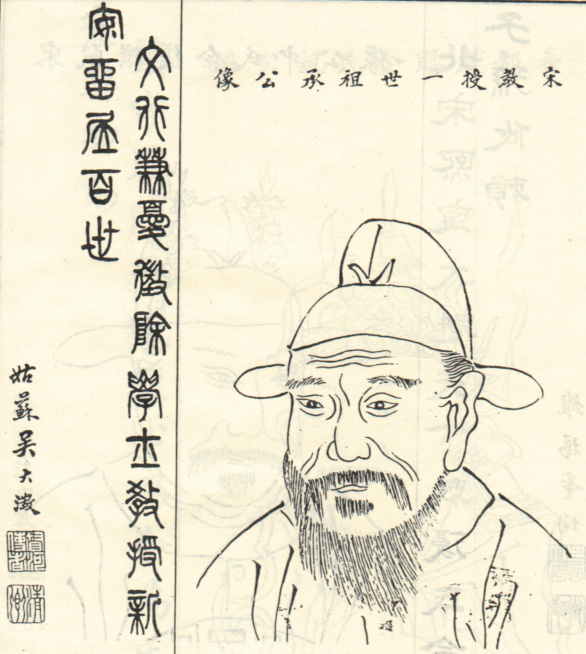 宋教授一世祖承公像
文行兼憂徵除學士教授新
安畱百世
姑蘇吳大澂
清卿